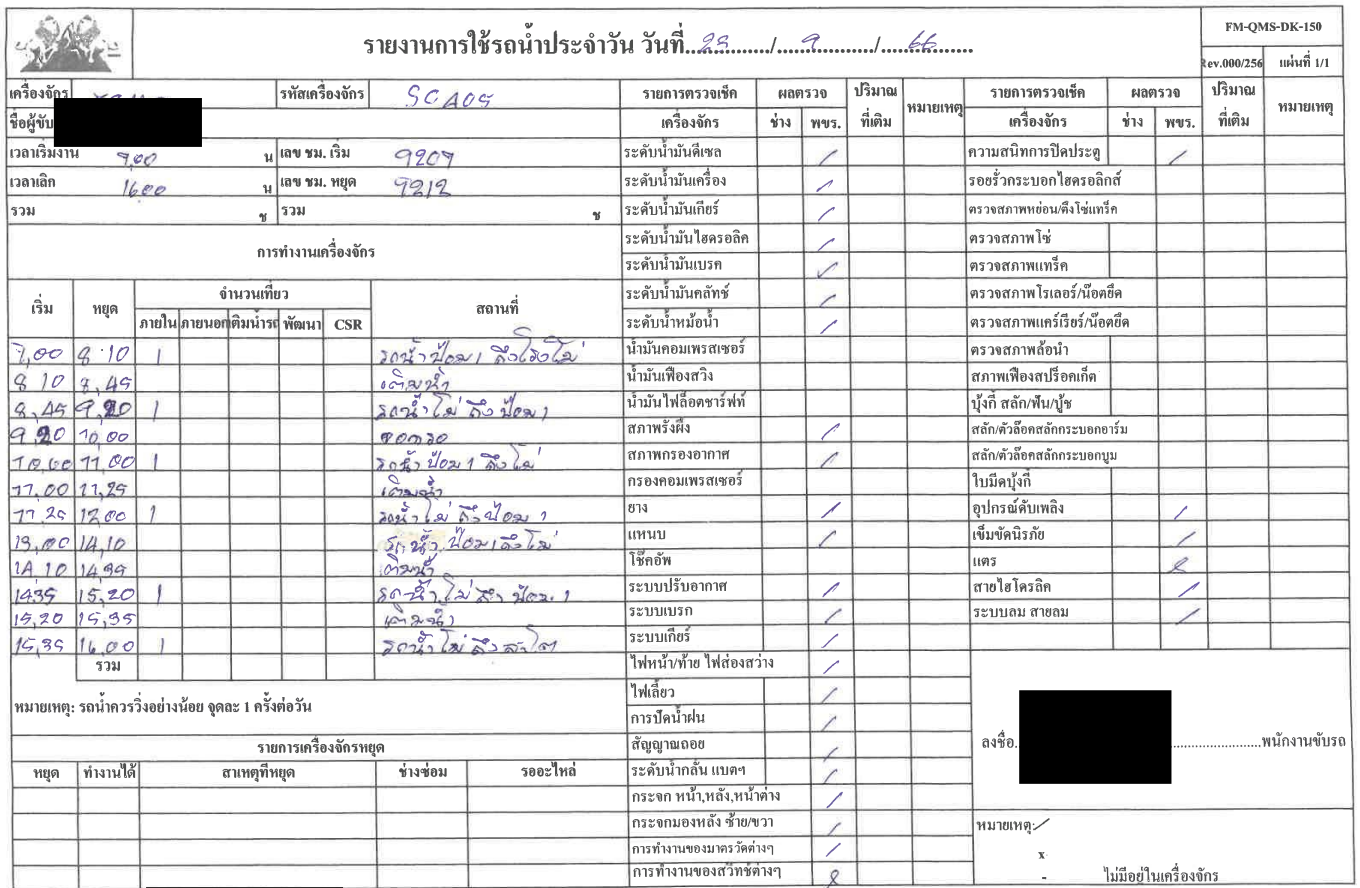 รายงานการใช้รถน้ำประจำวัน วันที่..25......./....9........../....66.......
FM-QMS-DK-150
Rev.000/256 แผ่นที่ 1/1
เครื่องจักร รหัสเครื่องจักร
ชื่อผู้ขับ
เวลาเริ่มงาน 7,00 น เลข ชม. เริ่ม 9207
เวลาเลิก 16.00 น เลข ชม. หยุด 9212
รวม ช รวม ช
การทำงานเครื่องจักร
เริ่ม หยุด จำนวนเที่ยว สถานที่
ภายใน ภายนอก เติมน้ำรถ พัฒนา CSR
7,00 8.10 1 รถน้ำป้อม 1 ถึงโรงโม่
8 10 8,45 เติมน้ำ
8,45 9,20 1 รถน้ำโม่ ถึง ป้อม 1
9,20 10,00 จอดรอ
10,00 11,00 1 รถน้ำ ป้อม 1 ถึงโม่
11,00 11,25 เติมน้ำ
11,25 12,00 1 รถน้ำโม่ ถึงป้อม 1
13,00 14,10 รถน้ำ ป้อม 1 ถึงโม่
14 10 14,35 เติมน้ำ
1435 15,20 1 รถน้ำโม่ ถึง ป้อม 1
15,20 15,35 เติมน้ำ
15,35 16,00 1 รถน้ำโม่ ถึง
รวม
หมายเหตุ: รถน้ำควรวิ่งอย่างน้อย จุดละ 1 ครั้งต่อวัน
รายการเครื่องจักรหยุด
หยุด ทำงานได้ สาเหตุที่หยุด ช่างซ่อม รออะไหล่
รายการตรวจเช็ค ผลตรวจ ปริมาณ หมายเหตุ
เครื่องจักร ช่าง พขร. ที่เติม
ระดับน้ำมันดีเซล /
ระดับน้ำมันเครื่อง /
ระดับน้ำมันเกียร์ /
ระดับน้ำมันไฮดรอลิค /
ระดับน้ำมันเบรค /
ระดับน้ำมันคลัทช์ /
ระดับน้ำหม้อน้ำ /
น้ำมันคอมเพรสเซอร์
น้ำมันเฟืองสวิง
น้ำมันไฟล็อตชาร์ฟท์
สภาพรังผึ้ง /
สภาพกรองอากาศ /
กรองคอมเพรสเซอร์
ยาง /
แหนบ /
โช๊คอัพ
ระบบปรับอากาศ /
ระบบเบรก /
ระบบเกียร์ /
ไฟหน้า/ท้าย ไฟส่องสว่าง /
ไฟเลี้ยว /
การปัดน้ำฝน /
สัญญาณถอย /
ระดับน้ำกลั่น แบตฯ /
กระจก หน้า,หลัง,หน้าต่าง /
กระจกมองหลัง ซ้าย/ขวา /
การทำงานของมาตรวัดต่างๆ /
การทำงานของสวิทช์ต่างๆ
รายการตรวจเช็ค ผลตรวจ ปริมาณ หมายเหตุ
เครื่องจักร ช่าง พขร. ที่เติม
ความสนิทการปิดประตู /
รอยรั่วกระบอกไฮดรอลิกส์
ตรวจสภาพหย่อน/ตึงโซ่แทร็ค
ตรวจสภาพโซ่
ตรวจสภาพแทร็ค
ตรวจสภาพโรเลอร์/น๊อตยึด
ตรวจสภาพแคร์เรียร์/น๊อตยึด
ตรวจสภาพล้อนำ
สภาพเฟืองสปร็อคเก็ต
บุ้งกี๋ สลัก/ฟัน/บู้ช
สลัก/ตัวล๊อคสลักกระบอกอาร์ม
สลัก/ตัวล๊อคสลักกระบอกบูม
ใบมีดบุ้งกี๋
อุปกรณ์ดับเพลิง /
เข็มขัดนิรภัย /
แตร
สายไฮโดรลิค /
ระบบลม สายลม /
ลงชื่อ. ................พนักงานขับรถ
หมายเหตุ: /
x
- ไม่มีอยู่ในเครื่องจักร